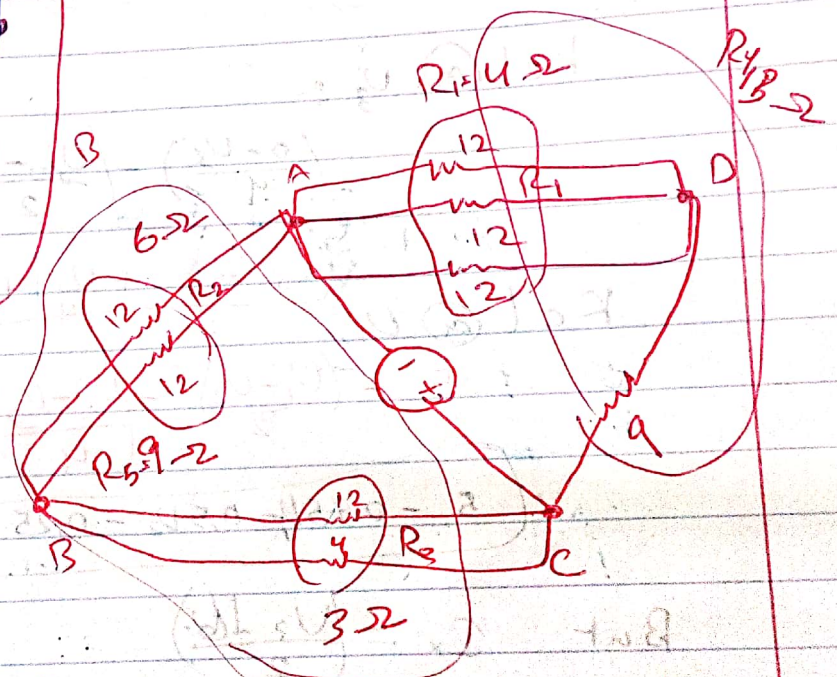 R₁=4Ω
R4,
13
Ω
B
A
12
R₁
D
6Ω
12
12
12
R₂
12
-
+
9
R₅=9Ω
12
B
4
R₃
C
3Ω